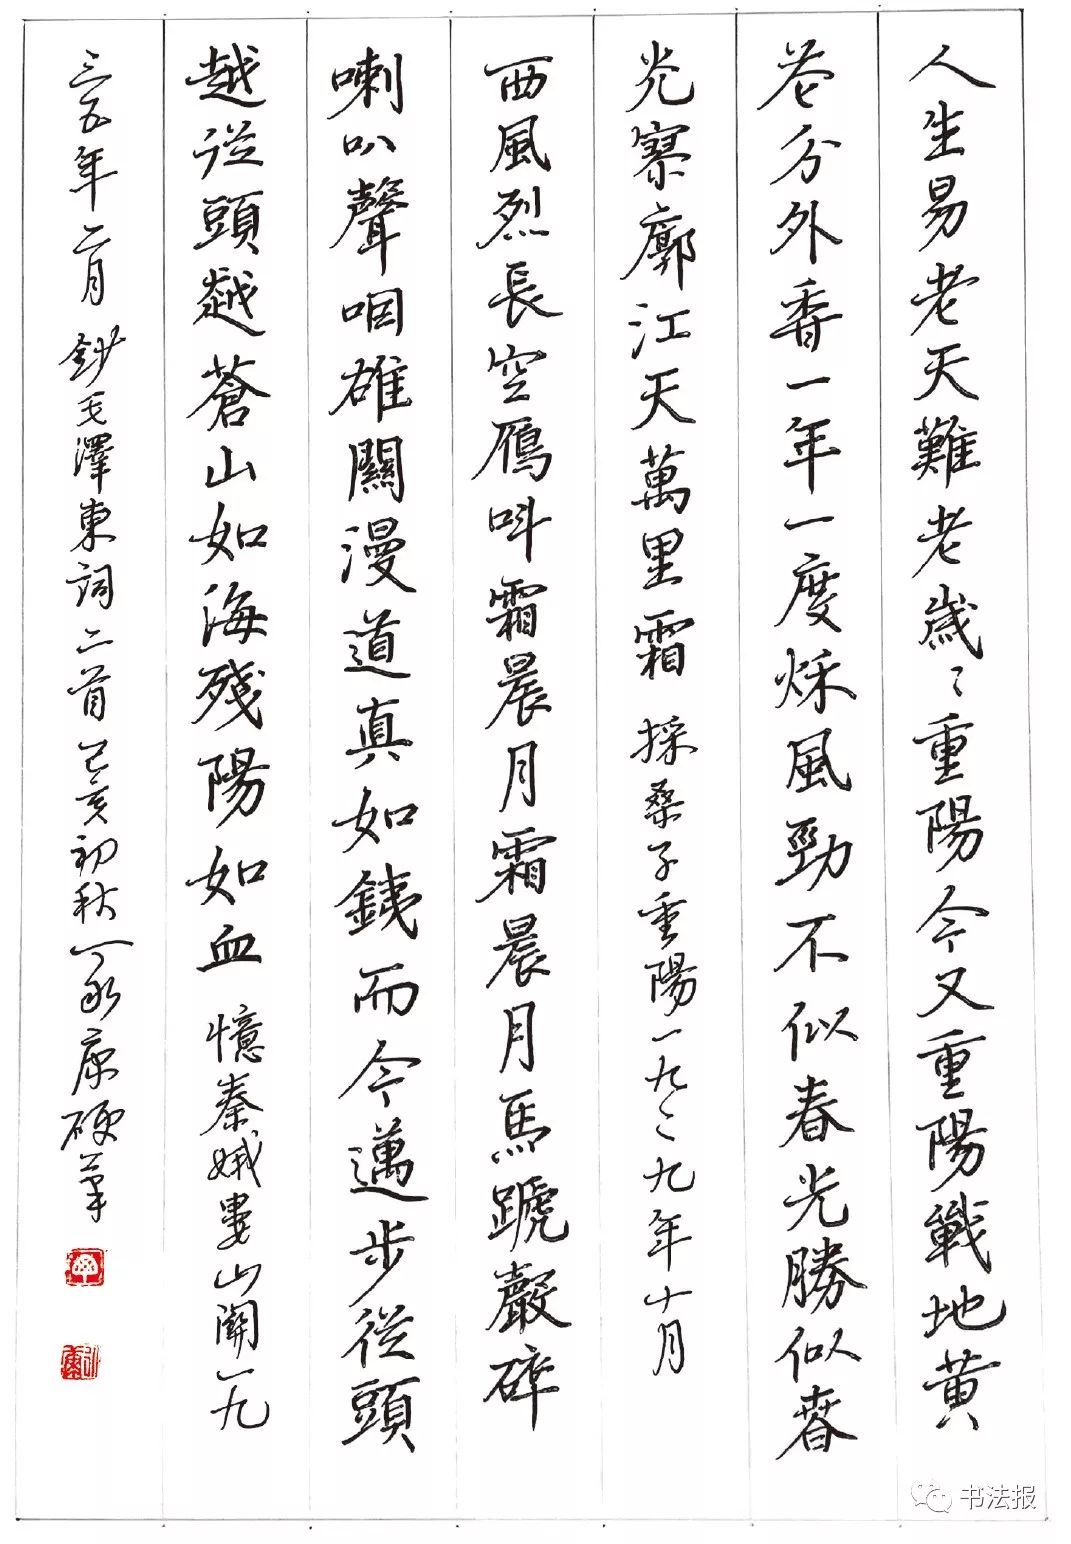 人生易老天難老歲〻重陽今又重陽戰地黃
花分外香一年一度秌風勁不似春光勝似春
光寥廓江天萬里霜 採桑子重陽一九二九年十月
西風烈長空鴈呌霜晨月霜晨月馬蹏嚴碎
喇叭聲咽雄關漫道真如銕而今邁步從頭
越從頭越蒼山如海殘陽如血 憶秦娥婁山關一九
三五年二月 鈔毛澤東詞二首己亥初秋
永康硬筆
书法报